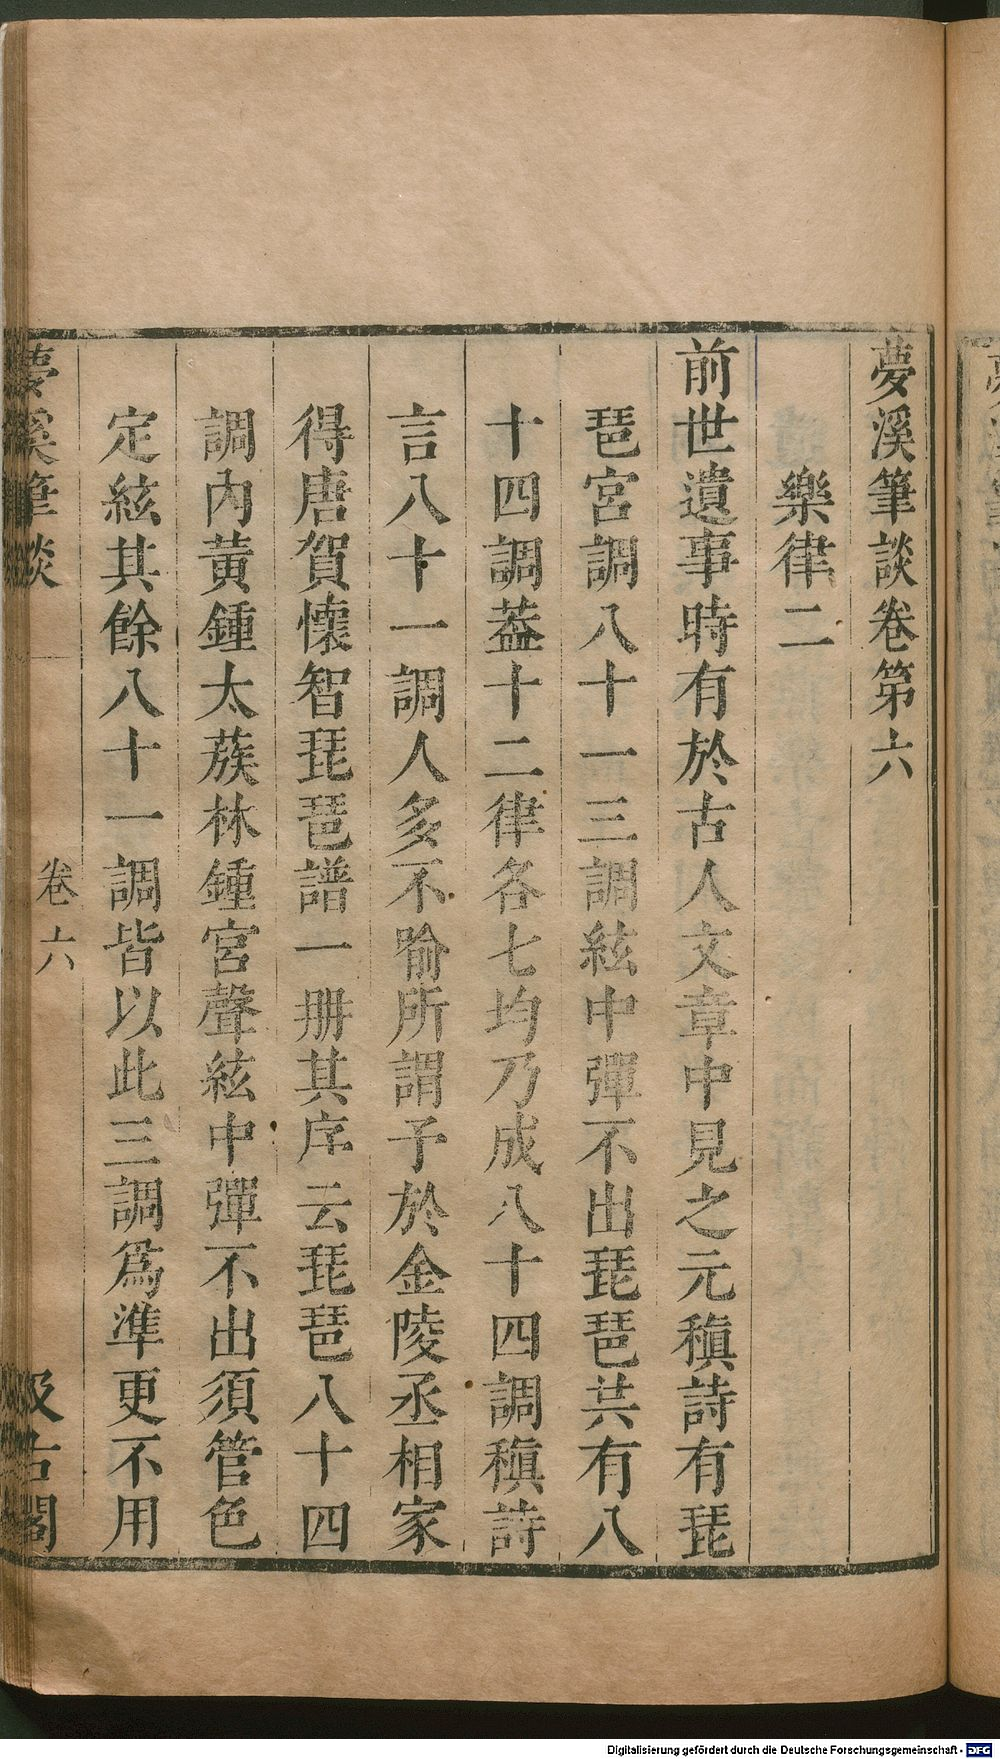 夢溪筆談卷第六
樂律二
前世遺事時有於古人文章中見之元稹詩有琵
琶宮調八十一三調絃中彈不出琵琶共有八
十四調葢十二律各七均乃成八十四調稹詩
言八十一調人多不喻所謂予於金陵丞相家
得唐賀懷智琵琶譜一册其序云琵琶八十四
調內黃鍾太蔟林鍾宮聲絃中彈不出須管色
定絃其餘八十一調皆以此三調爲準更不用
夢溪筆談
卷六
汲古閣
Digitalisierung gefördert durch die Deutsche Forschungsgemeinschaft - DFG